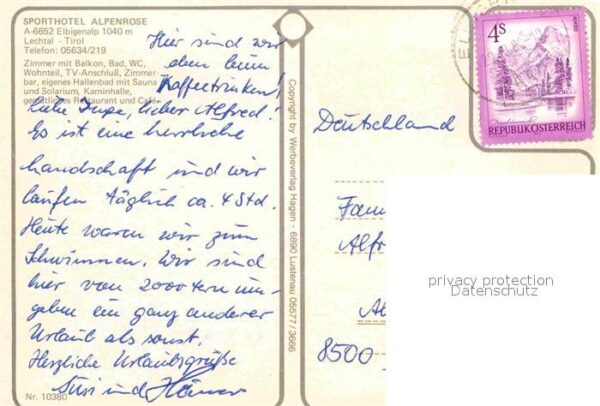 SPORTHOTEL ALPENROSE
A-6652 Elbigenalp 1040 m
Lechtal - Tirol
Telefon: 05634/219
Zimmer mit Balkon, Bad, WC,
Wohnteil, TV-Anschluß, Zimmer-
bar, eigenes Hallenbad mit Sauna
und Solarium, Kaminhalle,
gemütliches Restaurant und Café
Hier sind wir
eben beim
Kaffeetrinken!
Liebe Inge, lieber Alfred!
Es ist eine herrliche
Landschaft und wir
laufen täglich ca. 4 Std.
Heute waren wir zum
Schwimmen. Wir sind
hier von 2000tern um-
geben ein ganz anderer
Urlaub als sonst.
Herzliche Urlaubsgrüße
Susi und
Nr. 10380
Copyright by Werbeverlag Hagen - 6890 Lustenau 05577/3666
4S
REPUBLIK ÖSTERREICH
Deutschland
Fam
Alfr
8500
privacy protection
Datenschutz